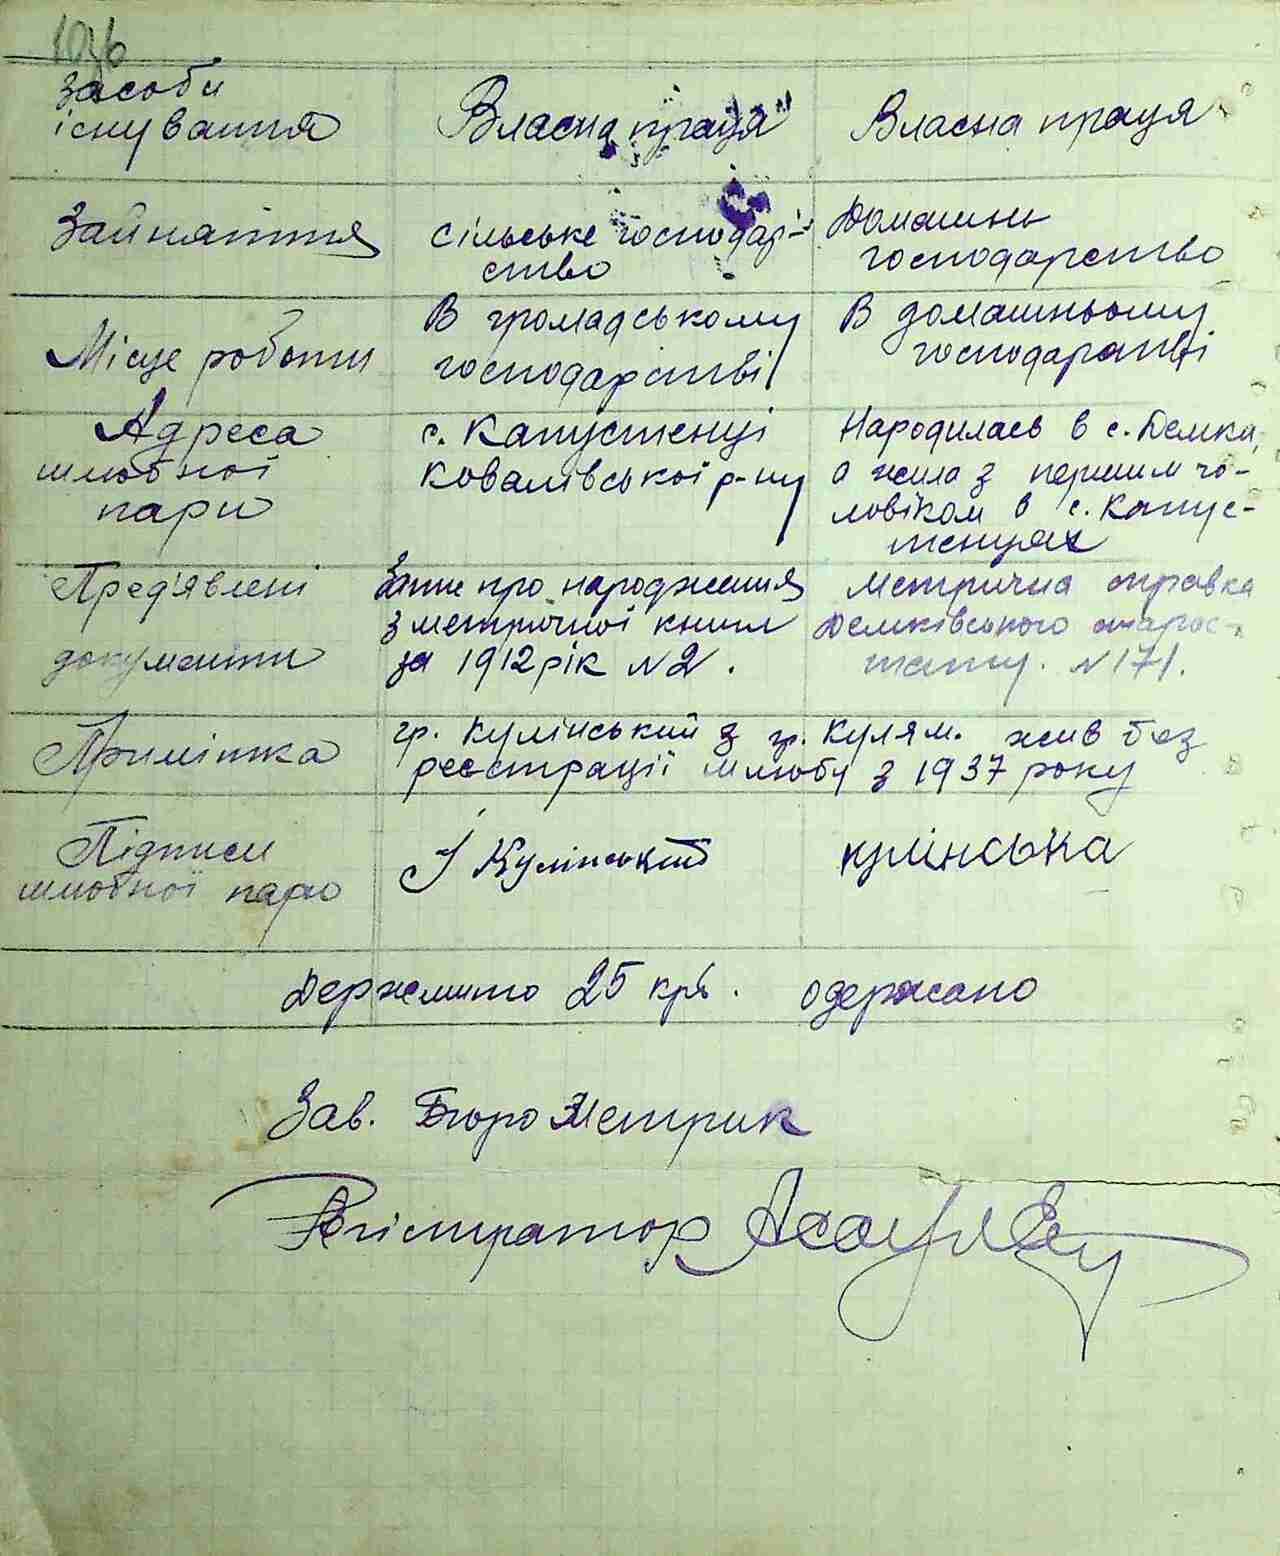 Засоби
існування
Власна праця
Власна праця
Зайняття
сільське господар-
ство
Домашнь
господарство
Місце роботи
В громадському
господарстві
В домашньому
господарстві
Адреса
шлюбної
пари
с. Капустенці
Ковалівської р-ну
Народилась в с. Демки,
а жила з першим чо-
ловіком в с. Капус-
тенцях
Пред'явлені
документи
про народження
з метричної книги
за 1912 рік N 2.
Метрична справка
Демківського старос-
тату. N 171.
Примітка
гр. Кулінський з гр. Кулям. жив без
реєстрації шлюбу з 1937 року
Підписи
шлюбної пари
І Кулінський
кулінська
Держмито 25 крб. одержано
Зав. Бюро Метрик
Регістратор